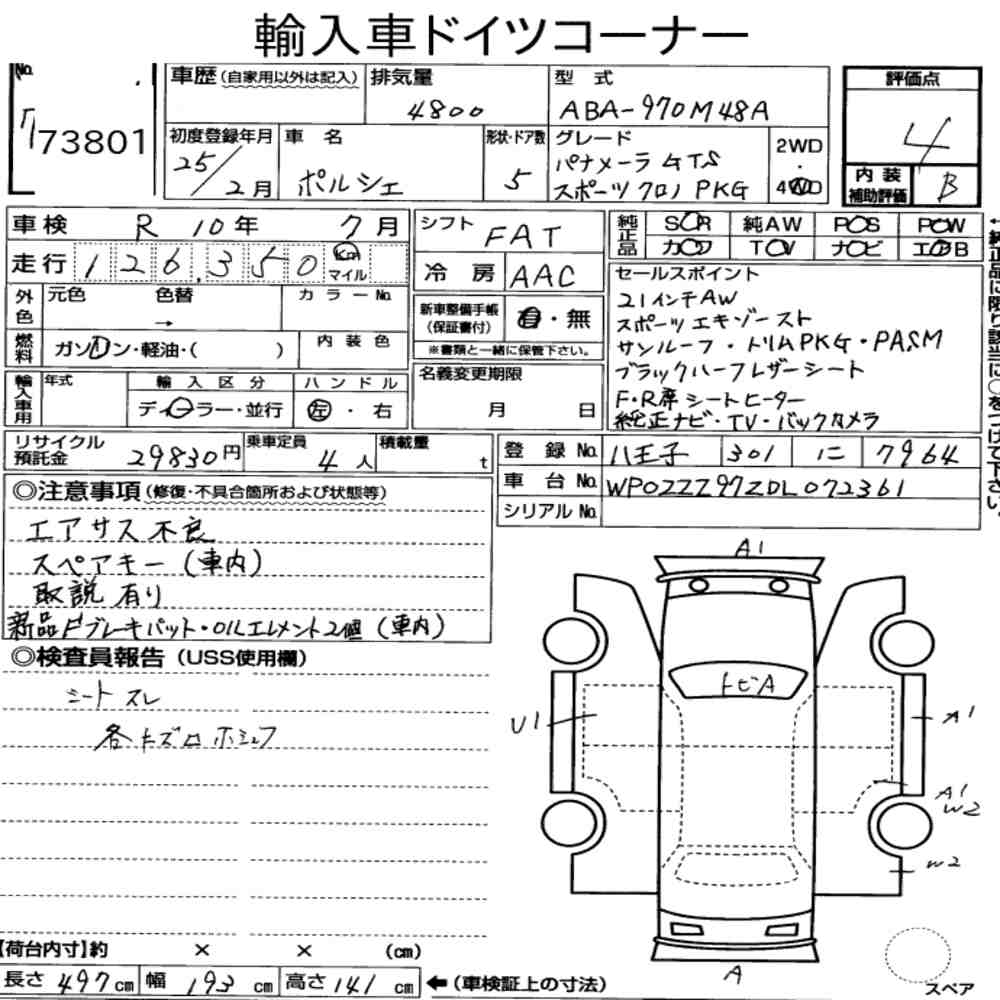 輸入車ドイツコーナー
No.
73801
車歴(自家用以外は記入)
排気量
4800
型式
ABA-970M48A
評価点
4
初度登録年月
25/2月
車名
ポルシェ
形状・ドア数
5
グレード
パナメーラ GTS
スポーツクロノ PKG
2WD
・
4WD
内装
補助評価
B
車検 R 10年 7月
シフト FAT
純正品
SR 純AW PS PW
カワ TV ナビ エアB
走行 126,350 Km マイル
冷房 AAC
外色
元色 色替 カラーNo.
→
新車整備手帳
(保証書付)
有・無
※書類と一緒に保管下さい。
燃料
ガソリン・軽油・( )
内装色
セールスポイント
21インチAW
スポーツエキゾースト
サンルーフ・トリムPKG・PASM
ブラックハーフレザーシート
F・R席シートヒーター
純正ナビ・TV・バックカメラ
輸入車用
年式
輸入区分
ディーラー・並行
ハンドル
左・右
名義変更期限
月 日
リサイクル
預託金
29830円
乗車定員
4人
積載量
t
登録No. 八王子 301 に 7964
車台No. WP0ZZZ97ZDL072361
シリアルNo.
◎注意事項(修復・不具合箇所および状態等)
エアサス不良
スペアキー(車内)
取説有り
新品Fブレーキパット・OILエレメント2個(車内)
◎検査員報告(USS使用欄)
シートスレ
各キズ
A1
トビA
U1
A1
A1
W2
W2
A
スペア
【荷台内寸】約 × × (cm)
長さ 497cm 幅 193cm 高さ 141cm ←(車検証上の寸法)